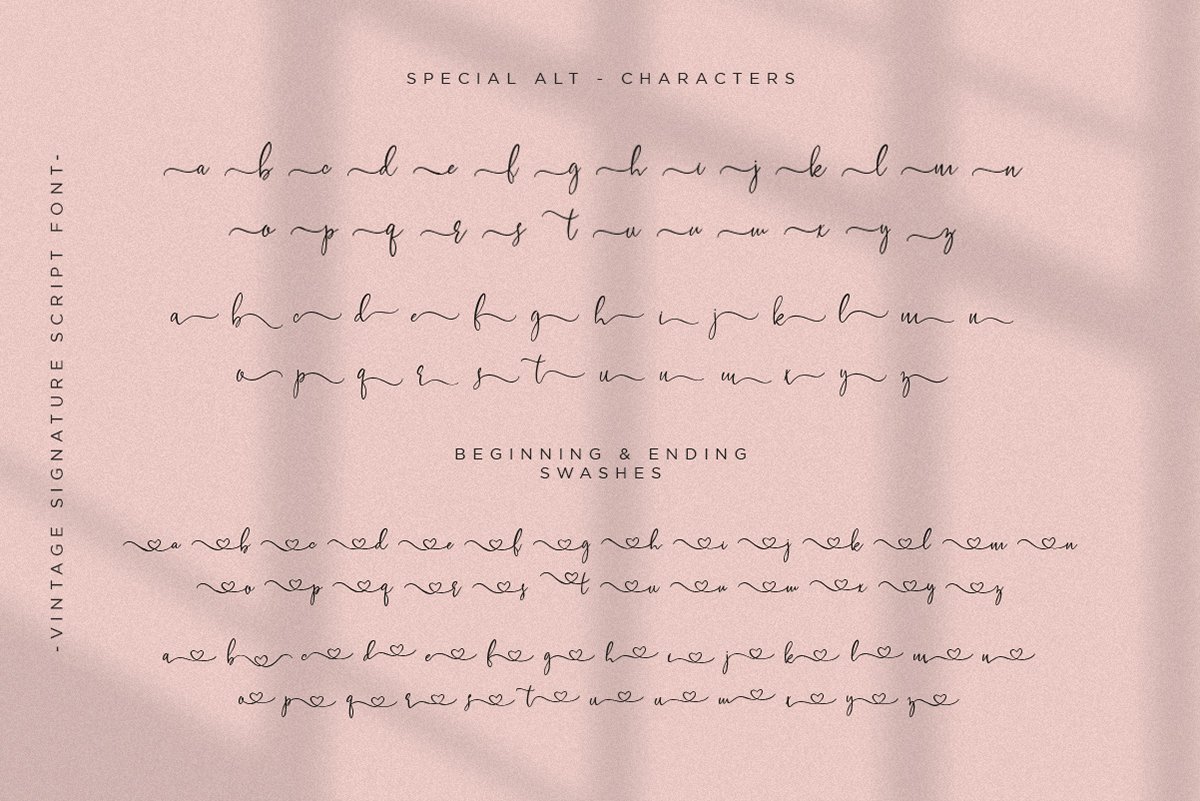 -VINTAGE SIGNATURE SCRIPT FONT-
SPECIAL ALT - CHARACTERS
a b c d e f g h i j k l m n
o p q r s t u u w x y z
a b c d e f g h i j k l m n
o p q r s t u u w x y z
BEGINNING & ENDING
SWASHES
a b c d e f g h i j k l m n
o p q r s t u u w x y z
a b c d e f g h i j k l m n
o p q r s t u u w x y z